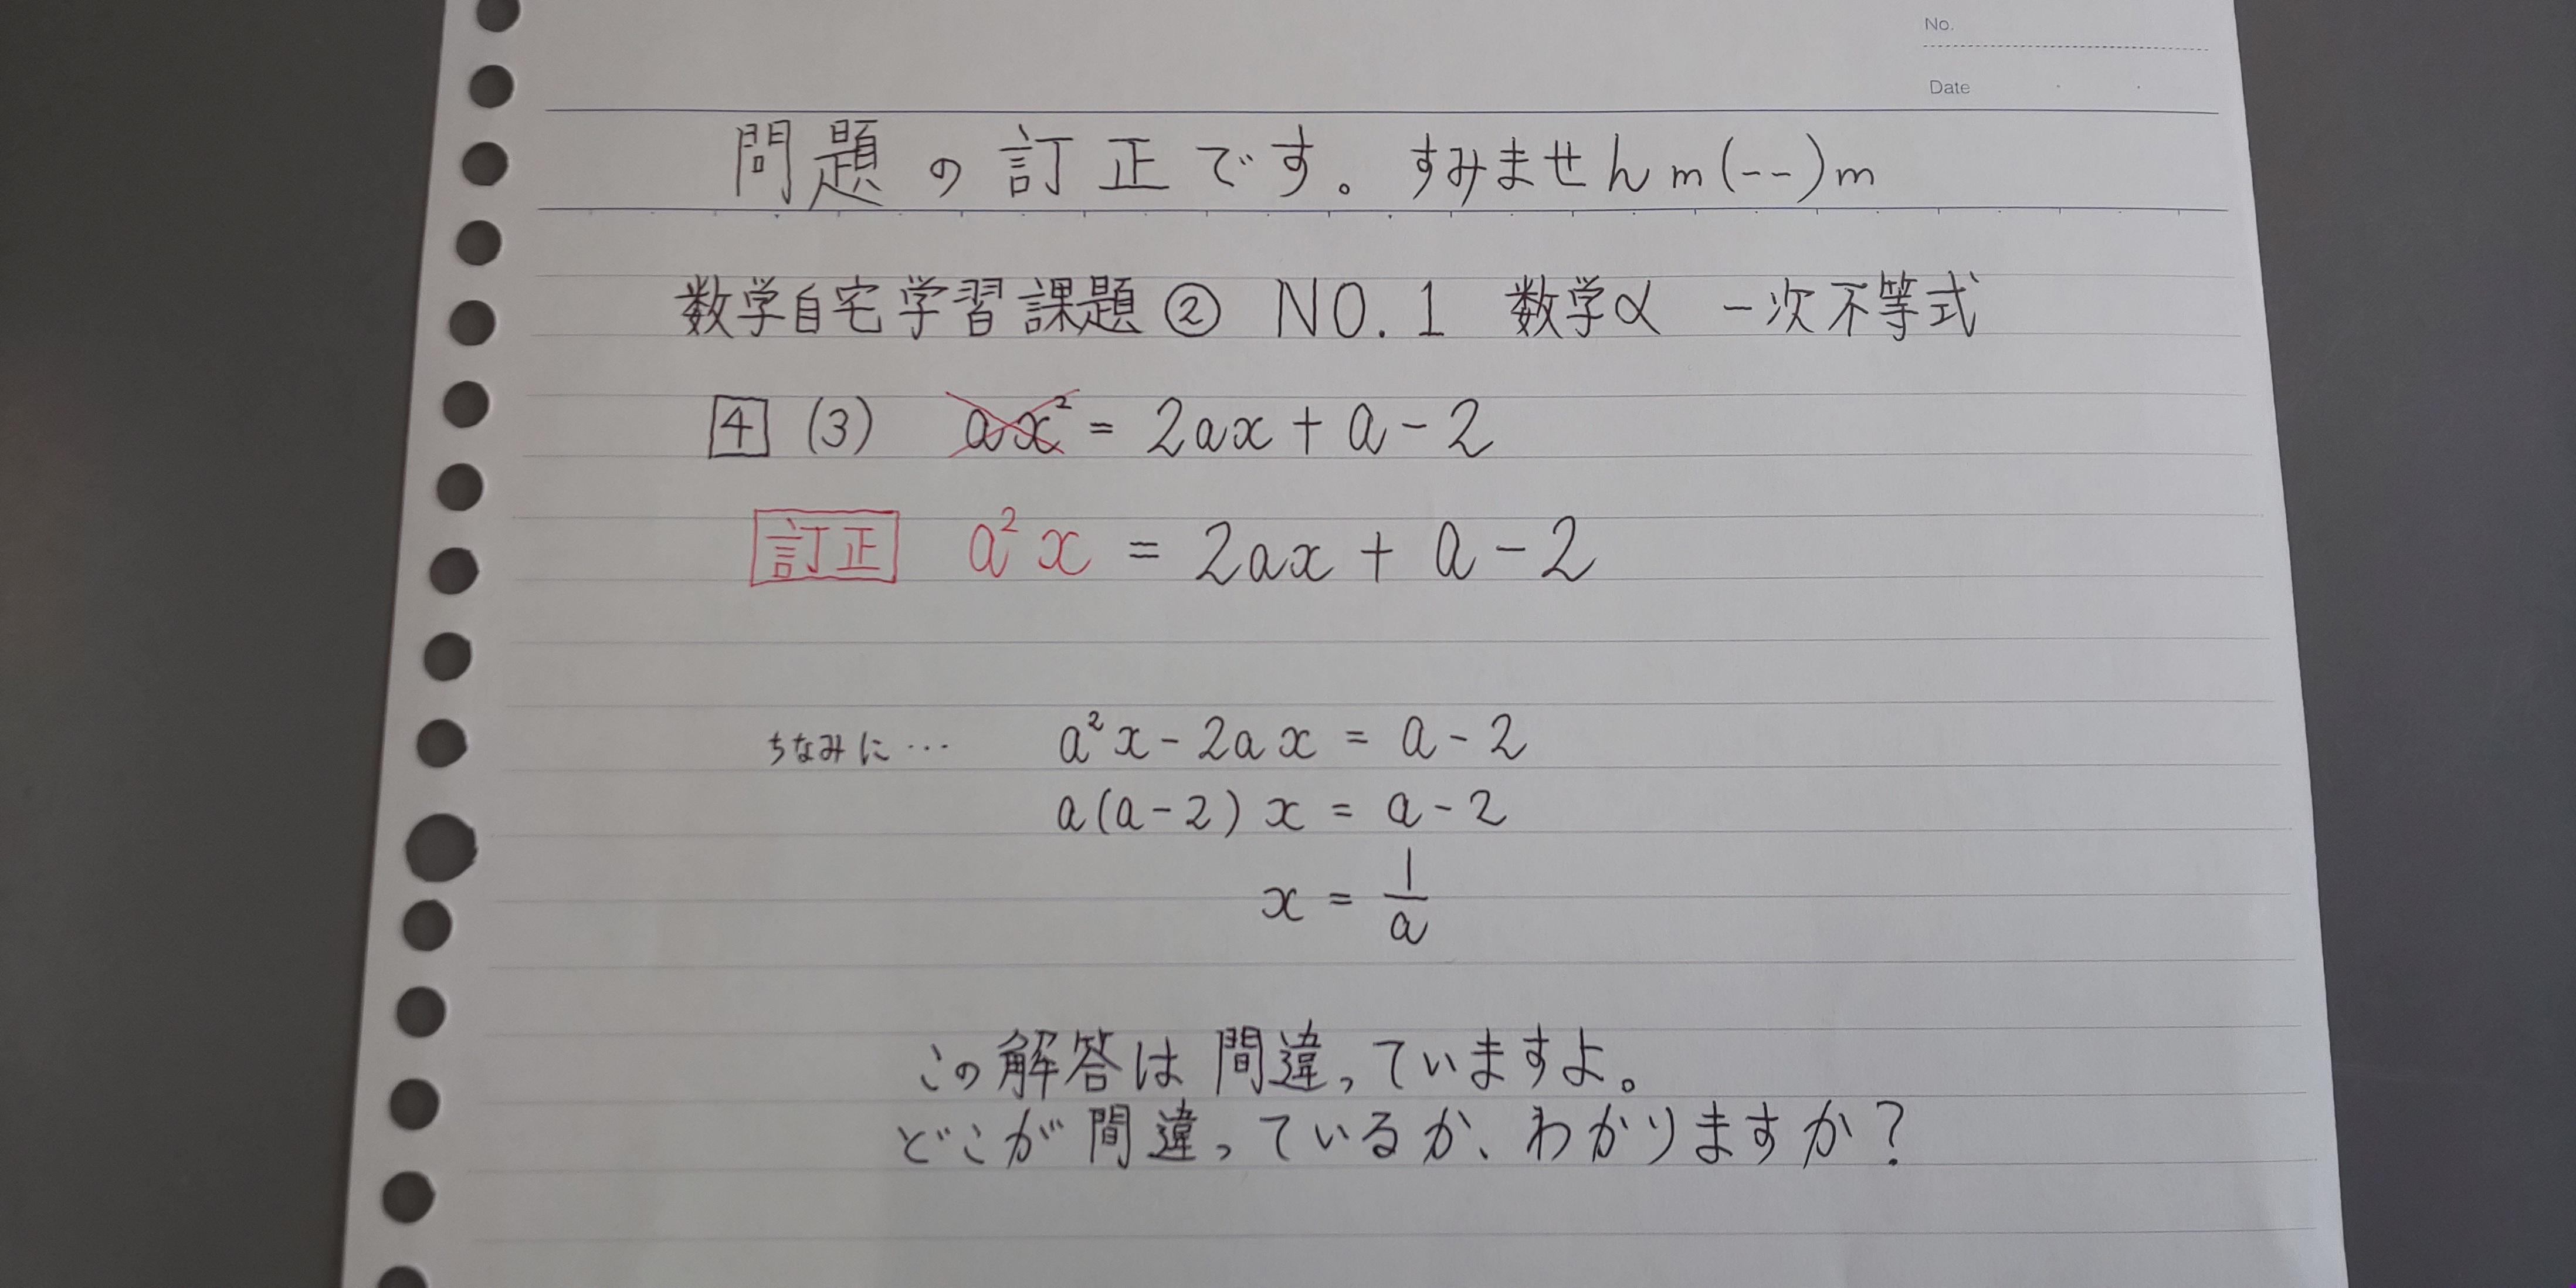 No.
Date
問題の訂正です。すみませんm(--)m
数学自宅学習課題② NO.1 数学α 一次不等式
4 (3) ax² = 2ax + a - 2
訂正 a²x = 2ax + a - 2
ちなみに… a²x - 2ax = a - 2
a(a-2)x = a - 2
x = 1/a
この解答は間違っていますよ。
どこが間違っているか、わかりますか?